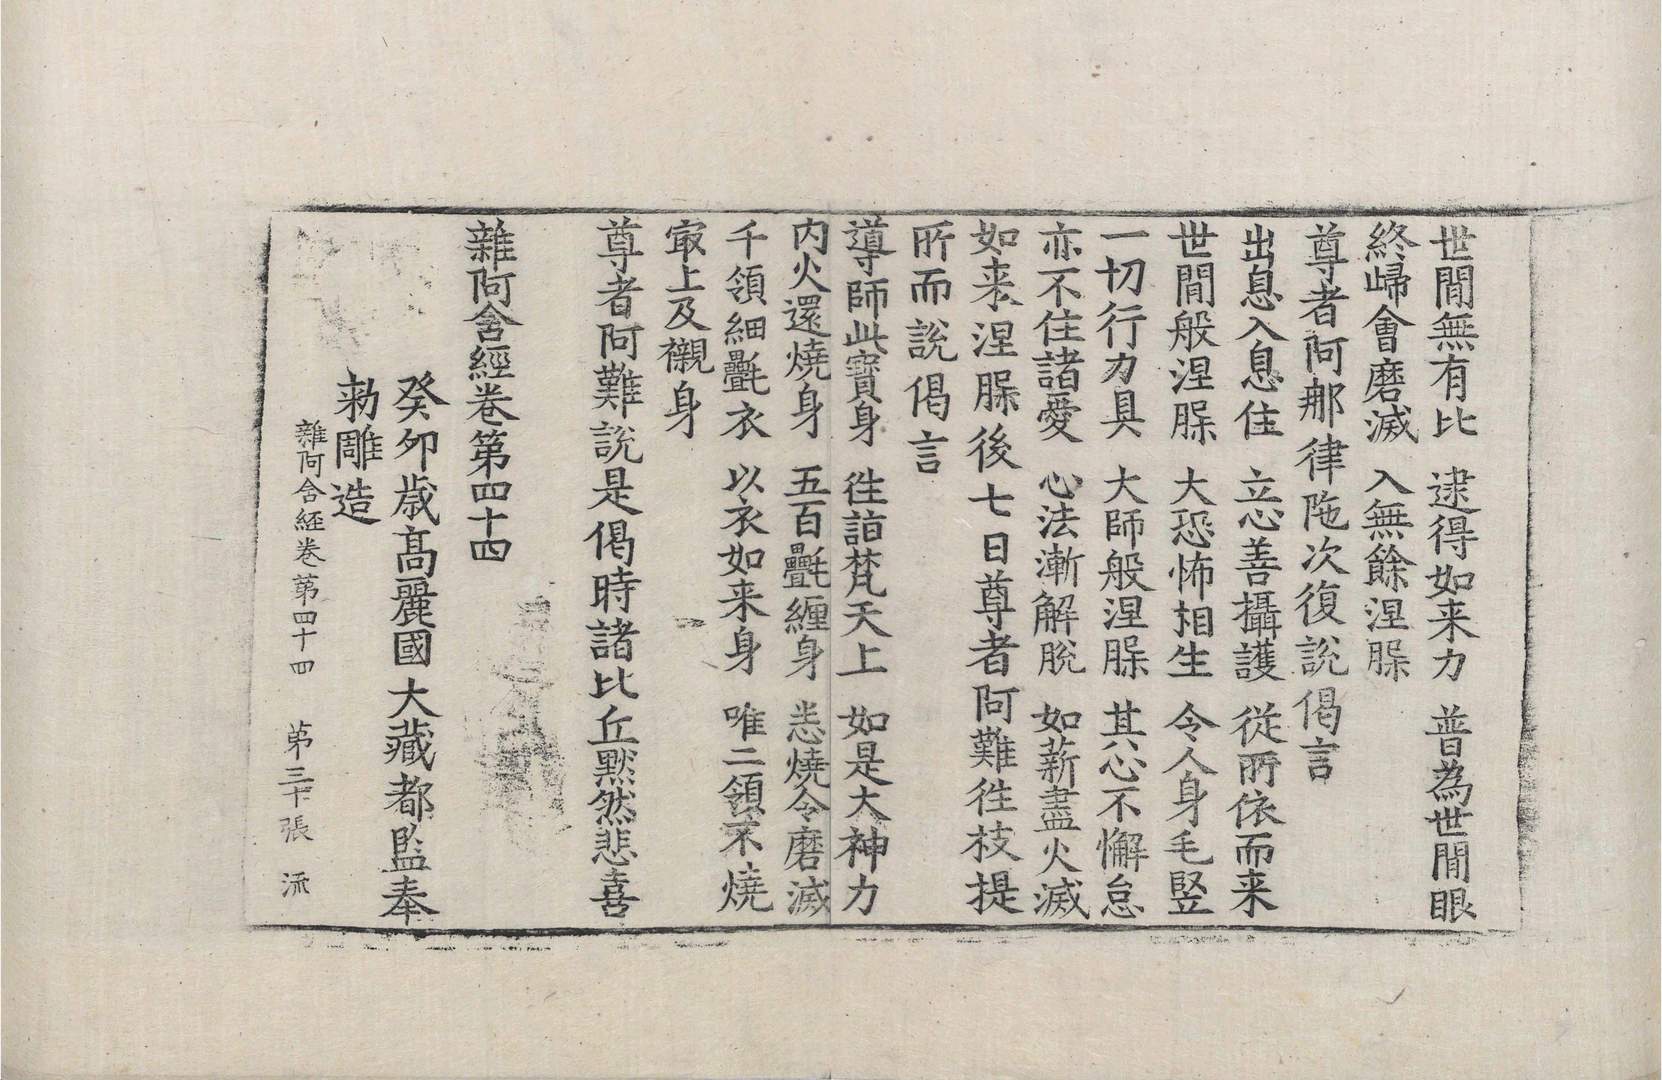 世間無有比　逮得如来力　普為世間眼
終歸會磨滅　入無餘涅槃
尊者阿那律陁次復說偈言
出息入息住　立心善攝護　從所依而来
世間般涅槃　大恐怖相生　令人身毛竪
一切行力具　大師般涅槃　其心不懈怠
亦不住諸愛　心法漸解脫　如薪盡火滅
如来涅槃後七日尊者阿難往枝提
所而說偈言
導師此寶身　往詣梵天上　如是大神力
内火還燒身　五百氎纏身　悉燒令磨滅
千領細氎衣　以衣如来身　唯二領不燒
㝡上及襯身
尊者阿難說是偈時諸比丘黙然悲喜
雜阿含經卷第四十四
癸卯歲髙麗國大藏都監奉
勅雕造
雜阿含経卷第四十四　第三十張　流